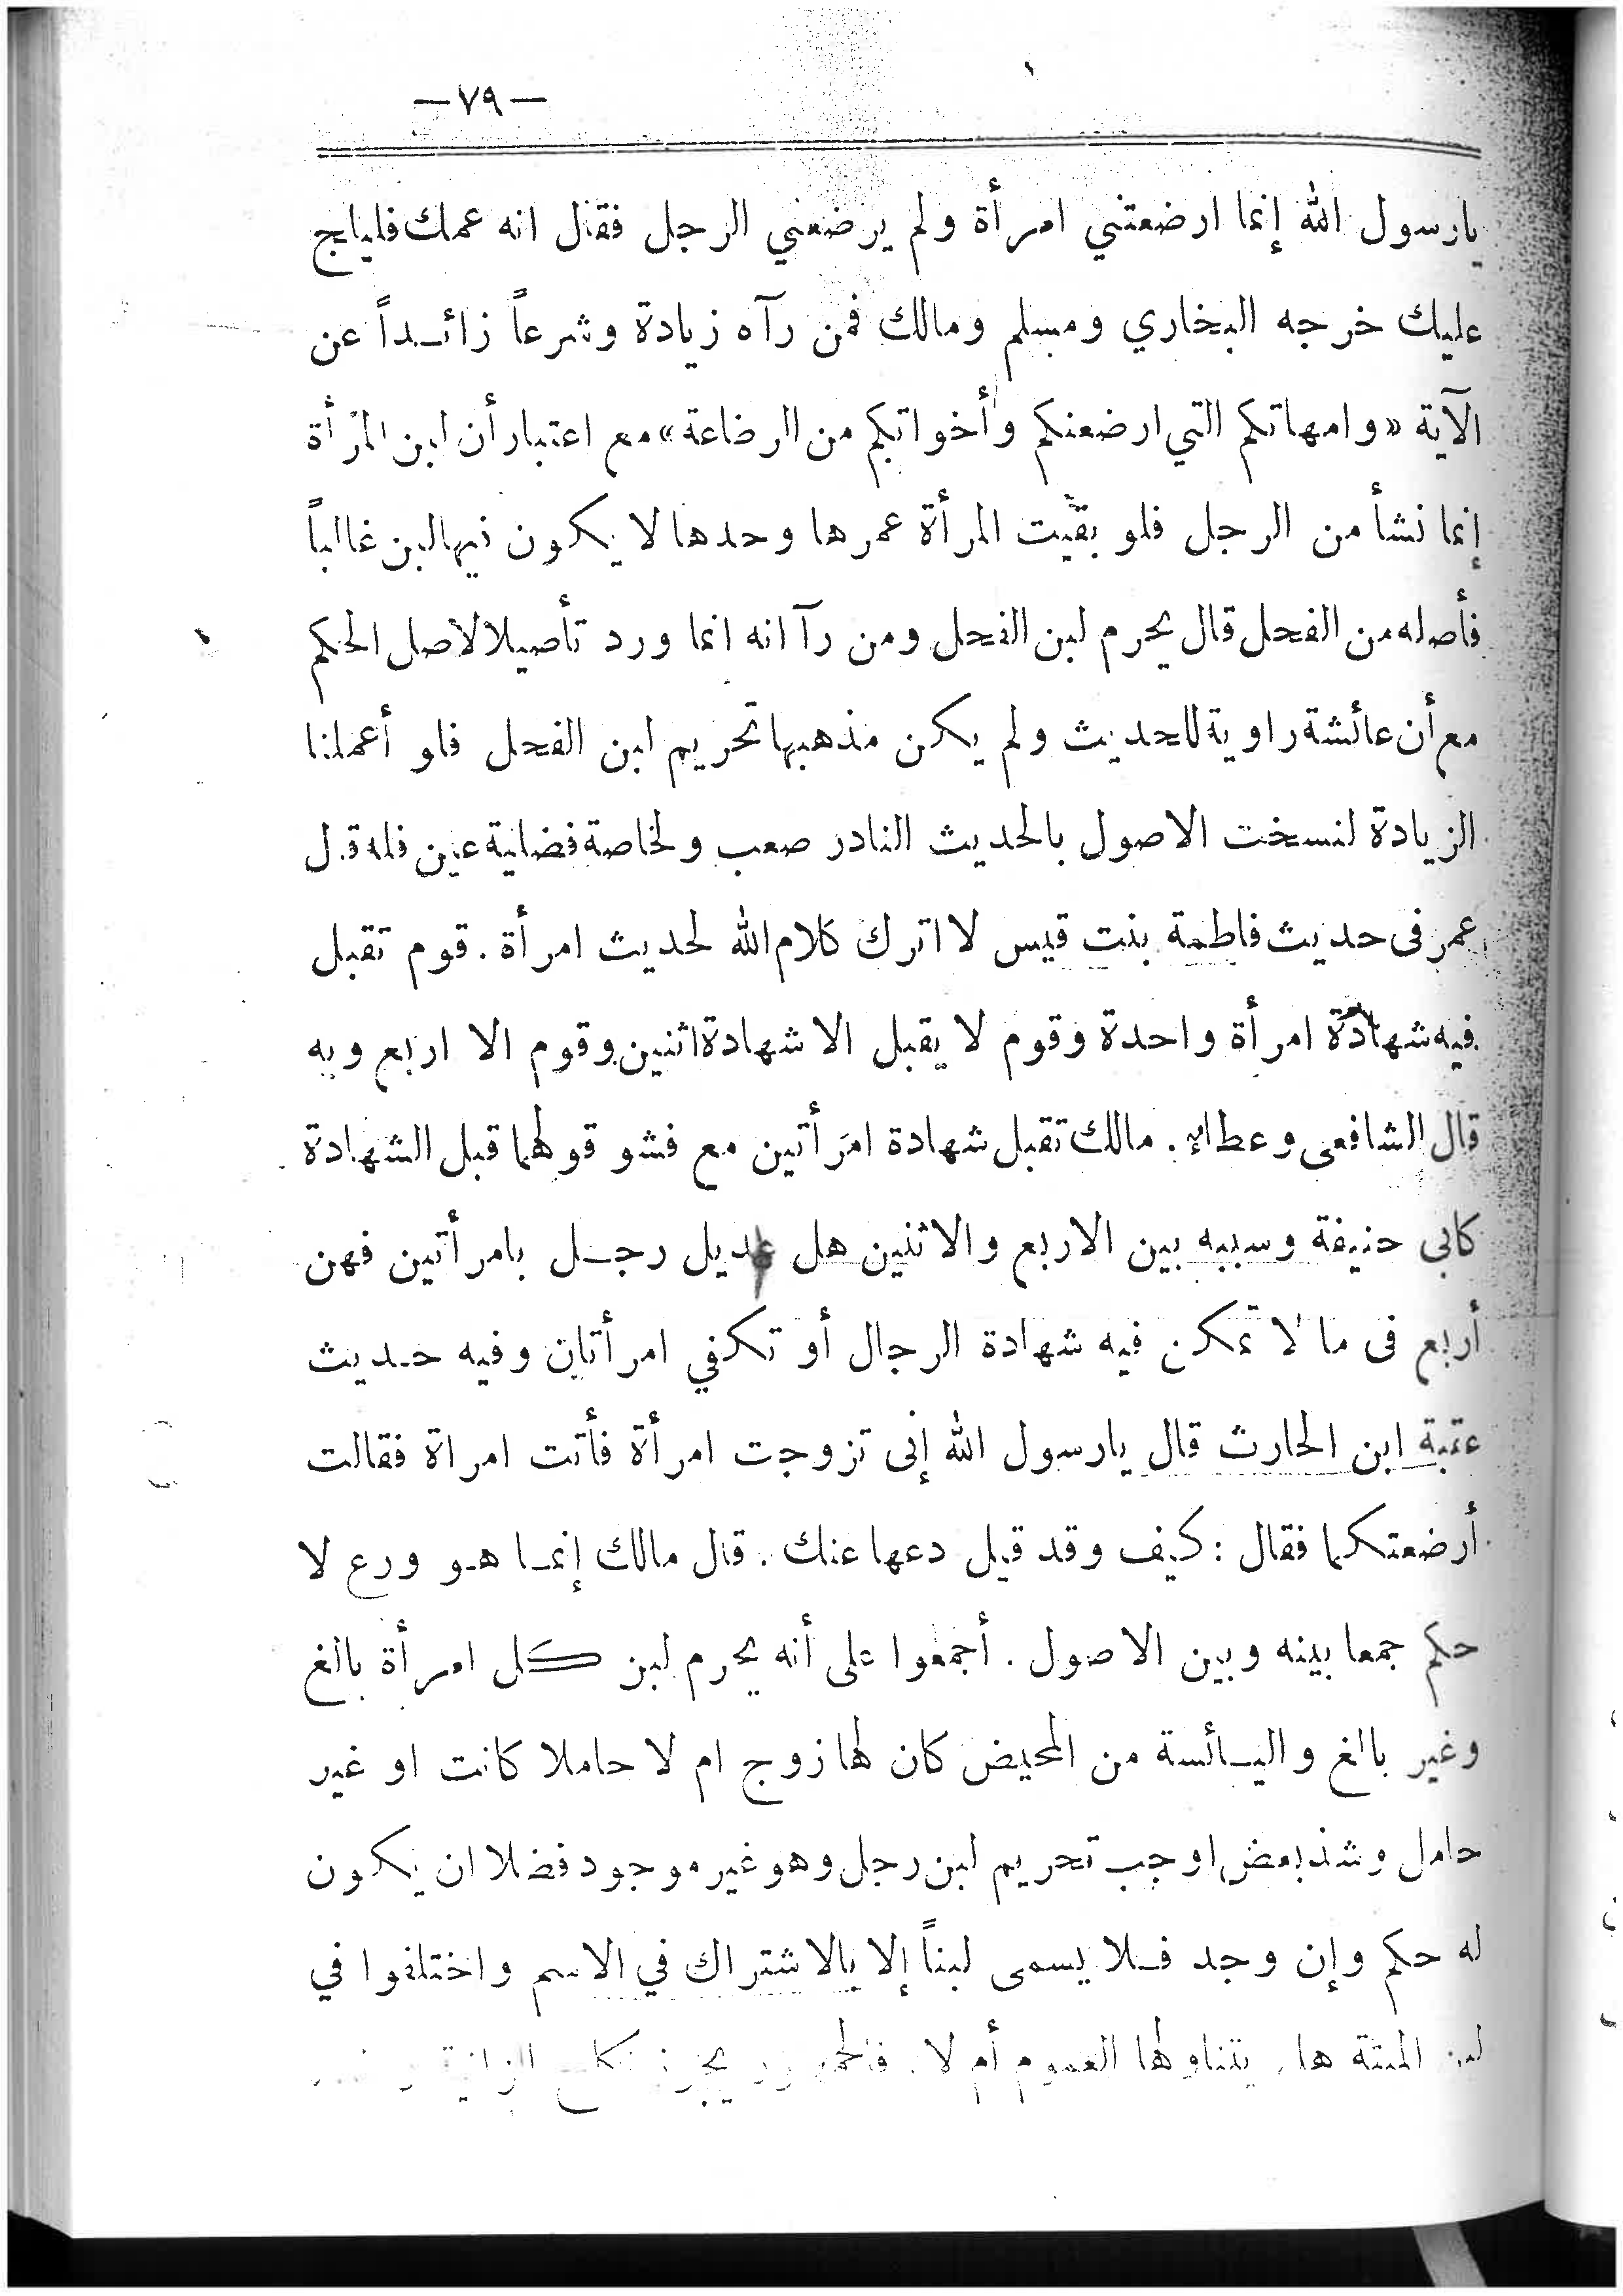 —٧٩—
يارسول الله إنما ارضعتني امرأة ولم يرضعني الرجل فقال انه عمك فليلج
عليك خرجه البخاري ومسلم ومالك فمن رآه زيادة وشرعاً زائداً عن
الآية «وامهاتكم التي ارضعنكم وأخواتكم من الرضاعة» مع اعتبار أن لبن المرأة
إنما نشأ من الرجل فلو بقيت المرأة عمرها وحدها لا يكون فيها لبن غالباً
فأصله من الفحل قال يحرم لبن الفحل ومن رآ انه انما ورد تأصيلا لاصل الحكم
مع أن عائشة راوية للحديث ولم يكن مذهبها تحريم لبن الفحل فلو أعملنا
الزيادة لنسخت الاصول بالحديث النادر صعب ولخاصة فضلية عين فله قال
عمر فى حديث فاطمة بنت قيس لا اترك كلام الله لحديث امرأة. قوم تقبل
فيه شهادة امرأة واحدة وقوم لا يقبل الا شهادة اثنين وقوم الا اربع وبه
قال الشافعى وعطاء. مالك تقبل شهادة امرأتين مع فشو قولهما قبل الشهادة
كابى حنيفة وسببه بين الاربع والاثنين هل عديل رجل بامرأتين فهن
أربع فى ما لا تمكن فيه شهادة الرجال أو تكفي امرأتان وفيه حديث
عقبة ابن الحارث قال يارسول الله إنى تزوجت امرأة فأتت امراة فقالت
أرضعتكما فقال : كيف وقد قيل دعها عنك. قال مالك إنما هو ورع لا
حكم جمعا بينه وبين الاصول. أجمعوا على أنه يحرم لبن كل امرأة بالغ
وغير بالغ واليائسة من المحيض كان لها زوج ام لا حاملا كانت او غير
حامل وشذ بعض اوجب تحريم لبن رجل وهو غير موجود فضلا ان يكون
له حكم وإن وجد فلا يسمى لبناً إلا بالاشتراك في الاسم واختلفوا في
لبن الميتة هل يتناولها العموم أم لا.